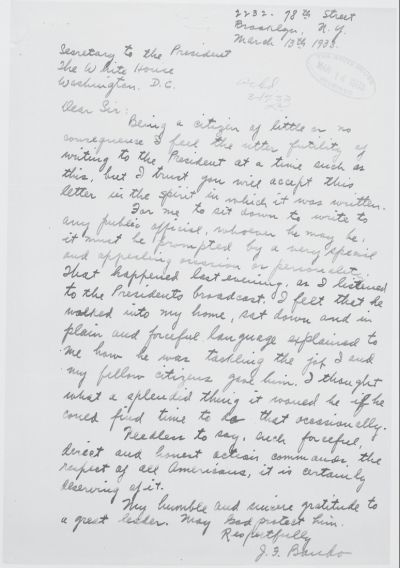 2232- 78th Street
Brooklyn, N.Y.
March 13th 1933.
Secretary to the President
The White House
Washington, D.C.
Dear Sir:
Being a citizen of little or no
consequence I feel the utter futility of
writing to the President at a time such as
this, but I trust you will accept this
letter in the spirit in which it was written.
For me to sit down to write to
any public official, whoever he may be,
it must be prompted by a very special
and appealing occasion or personality.
That happened last evening, as I listened
to the President's broadcast. I felt that he
walked into my home, sat down and in
plain and forceful language explained to
me how he was tackling the job I and
my fellow citizens gave him. I thought
what a splendid thing it would be if he
could find time to do that occasionally.
Needless to say, such forceful,
direct and honest action commands the
respect of all Americans, it is certainly
deserving of it.
My humble and sincere gratitude to
a great leader. May God protect him.
Respectfully
J. F. Bando